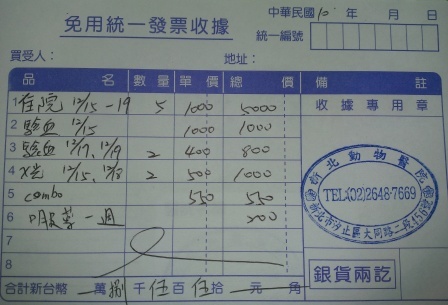 免用統一發票收據
中華民國10 年 月 日
統一編號
買受人： 地址：
品 名 數量 單價 總 價 備 註
1 住院 12/15-19 5 1000 5000 收據專用章
2 驗血 12/15 1000 1000
3 驗血 12/17, 12/19 2 400 800
4 X光 12/15, 12/ 2 500 1000
5 combo 550 550
6 口服藥 一週 200
7
8
新北動物醫院
TEL:(02)2648-7669
新北市汐止區大同路二段156號
合計新台幣 萬 捌 千 伍 百 伍 拾 元 角
銀貨兩訖